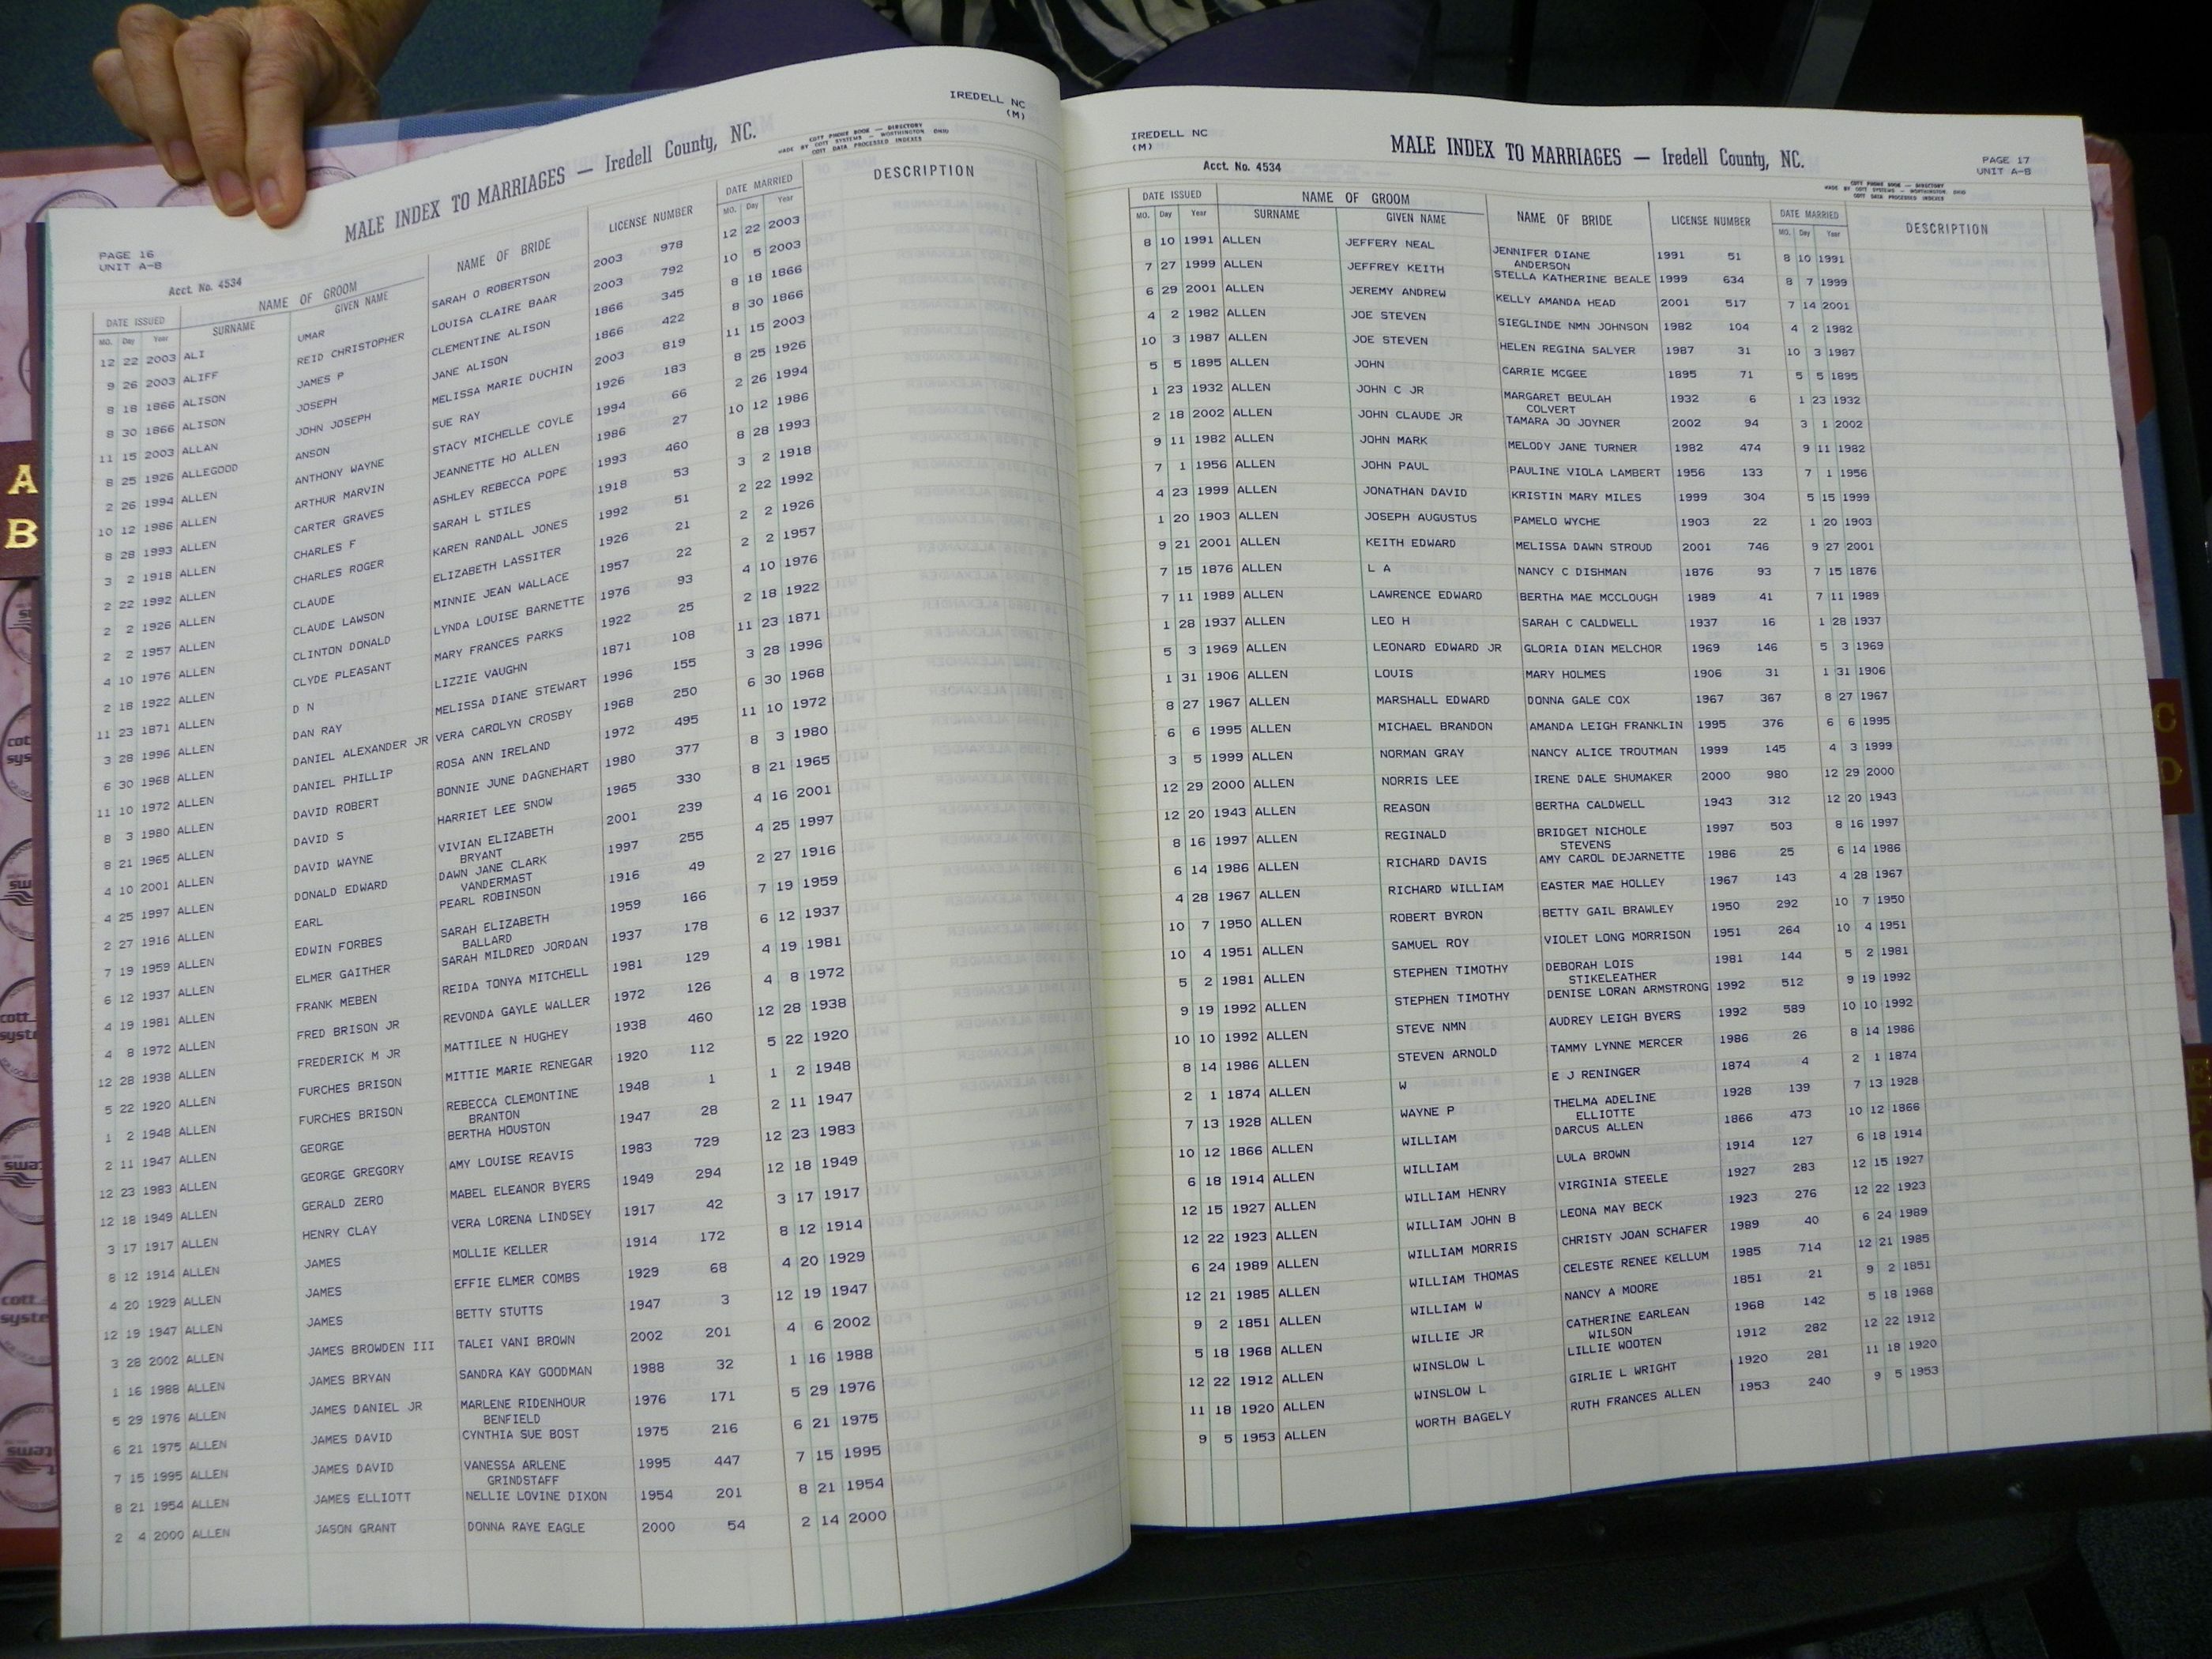 IREDELL NC
(M)
MALE INDEX TO MARRIAGES — Iredell County, NC.
COTT PHONE BOOK — DIRECTORY
MADE BY COTT SYSTEMS — WORTHINGTON OHIO
COTT DATA PROCESSED INDEXES
PAGE 16
UNIT A-B
Acct. No. 4534
DATE ISSUED NAME OF GROOM NAME OF BRIDE LICENSE NUMBER DATE MARRIED DESCRIPTION
MO. Day Year SURNAME GIVEN NAME MO. Day Year
12 22 2003 ALI UMAR SARAH O ROBERTSON 2003 978 12 22 2003
9 26 2003 ALIFF REID CHRISTOPHER LOUISA CLAIRE BAAR 2003 792 10 5 2003
8 18 1866 ALISON JAMES P CLEMENTINE ALISON 1866 345 8 18 1866
8 30 1866 ALISON JOSEPH JANE ALISON 1866 422 8 30 1866
11 15 2003 ALLAN JOHN JOSEPH MELISSA MARIE DUCHIN 2003 819 11 15 2003
8 25 1926 ALLEGOOD ANSON SUE RAY 1926 183 8 25 1926
2 26 1994 ALLEN ANTHONY WAYNE STACY MICHELLE COYLE 1994 66 2 26 1994
10 12 1986 ALLEN ARTHUR MARVIN JEANNETTE HO ALLEN 1986 27 10 12 1986
8 28 1993 ALLEN CARTER GRAVES ASHLEY REBECCA POPE 1993 460 8 28 1993
3 2 1918 ALLEN CHARLES F SARAH L STILES 1918 53 3 2 1918
2 22 1992 ALLEN CHARLES ROGER KAREN RANDALL JONES 1992 51 2 22 1992
2 2 1926 ALLEN CLAUDE ELIZABETH LASSITER 1926 21 2 2 1926
2 2 1957 ALLEN CLAUDE LAWSON MINNIE JEAN WALLACE 1957 22 2 2 1957
4 10 1976 ALLEN CLINTON DONALD LYNDA LOUISE BARNETTE 1976 93 4 10 1976
2 18 1922 ALLEN CLYDE PLEASANT MARY FRANCES PARKS 1922 25 2 18 1922
11 23 1871 ALLEN D N LIZZIE VAUGHN 1871 108 11 23 1871
3 28 1996 ALLEN DAN RAY MELISSA DIANE STEWART 1996 155 3 28 1996
6 30 1968 ALLEN DANIEL ALEXANDER JR VERA CAROLYN CROSBY 1968 250 6 30 1968
11 10 1972 ALLEN DANIEL PHILLIP ROSA ANN IRELAND 1972 495 11 10 1972
8 3 1980 ALLEN DAVID ROBERT BONNIE JUNE DAGNEHART 1980 377 8 3 1980
8 21 1965 ALLEN DAVID S HARRIET LEE SNOW 1965 330 8 21 1965
4 10 2001 ALLEN DAVID WAYNE VIVIAN ELIZABETH 2001 239 4 16 2001
BRYANT
4 25 1997 ALLEN DONALD EDWARD DAWN JANE CLARK 1997 255 4 25 1997
VANDERMAST
2 27 1916 ALLEN EARL PEARL ROBINSON 1916 49 2 27 1916
7 19 1959 ALLEN EDWIN FORBES SARAH ELIZABETH 1959 166 7 19 1959
BALLARD
6 12 1937 ALLEN ELMER GAITHER SARAH MILDRED JORDAN 1937 178 6 12 1937
4 19 1981 ALLEN FRANK MEBEN REIDA TONYA MITCHELL 1981 129 4 19 1981
4 8 1972 ALLEN FRED BRISON JR REVONDA GAYLE WALLER 1972 126 4 8 1972
12 28 1938 ALLEN FREDERICK M JR MATTILEE N HUGHEY 1938 460 12 28 1938
5 22 1920 ALLEN FURCHES BRISON MITTIE MARIE RENEGAR 1920 112 5 22 1920
1 2 1948 ALLEN FURCHES BRISON REBECCA CLEMONTINE 1948 1 1 2 1948
BRANTON
2 11 1947 ALLEN GEORGE BERTHA HOUSTON 1947 28 2 11 1947
12 23 1983 ALLEN GEORGE GREGORY AMY LOUISE REAVIS 1983 729 12 23 1983
12 18 1949 ALLEN GERALD ZERO MABEL ELEANOR BYERS 1949 294 12 18 1949
3 17 1917 ALLEN HENRY CLAY VERA LORENA LINDSEY 1917 42 3 17 1917
8 12 1914 ALLEN JAMES MOLLIE KELLER 1914 172 8 12 1914
4 20 1929 ALLEN JAMES EFFIE ELMER COMBS 1929 68 4 20 1929
12 19 1947 ALLEN JAMES BETTY STUTTS 1947 3 12 19 1947
3 28 2002 ALLEN JAMES BROWDEN III TALEI VANI BROWN 2002 201 4 6 2002
1 16 1988 ALLEN JAMES BRYAN SANDRA KAY GOODMAN 1988 32 1 16 1988
5 29 1976 ALLEN JAMES DANIEL JR MARLENE RIDENHOUR 1976 171 5 29 1976
BENFIELD
6 21 1975 ALLEN JAMES DAVID CYNTHIA SUE BOST 1975 216 6 21 1975
7 15 1995 ALLEN JAMES DAVID VANESSA ARLENE 1995 447 7 15 1995
GRINDSTAFF
8 21 1954 ALLEN JAMES ELLIOTT NELLIE LOVINE DIXON 1954 201 8 21 1954
2 4 2000 ALLEN JASON GRANT DONNA RAYE EAGLE 2000 54 2 14 2000
IREDELL NC
(M)
MALE INDEX TO MARRIAGES — Iredell County, NC.
PAGE 17
UNIT A-B
Acct. No. 4534
COTT PHONE BOOK — DIRECTORY
MADE BY COTT SYSTEMS — WORTHINGTON OHIO
COTT DATA PROCESSED INDEXES
DATE ISSUED NAME OF GROOM NAME OF BRIDE LICENSE NUMBER DATE MARRIED DESCRIPTION
MO. Day Year SURNAME GIVEN NAME MO. Day Year
8 10 1991 ALLEN JEFFERY NEAL JENNIFER DIANE 1991 51 8 10 1991
ANDERSON
7 27 1999 ALLEN JEFFREY KEITH STELLA KATHERINE BEALE 1999 634 8 7 1999
6 29 2001 ALLEN JEREMY ANDREW KELLY AMANDA HEAD 2001 517 7 14 2001
4 2 1982 ALLEN JOE STEVEN SIEGLINDE NMN JOHNSON 1982 104 4 2 1982
10 3 1987 ALLEN JOE STEVEN HELEN REGINA SALYER 1987 31 10 3 1987
5 5 1895 ALLEN JOHN CARRIE MCGEE 1895 71 5 5 1895
1 23 1932 ALLEN JOHN C JR MARGARET BEULAH 1932 6 1 23 1932
COLVERT
2 18 2002 ALLEN JOHN CLAUDE JR TAMARA JO JOYNER 2002 94 3 1 2002
9 11 1982 ALLEN JOHN MARK MELODY JANE TURNER 1982 474 9 11 1982
7 1 1956 ALLEN JOHN PAUL PAULINE VIOLA LAMBERT 1956 133 7 1 1956
4 23 1999 ALLEN JONATHAN DAVID KRISTIN MARY MILES 1999 304 5 15 1999
1 20 1903 ALLEN JOSEPH AUGUSTUS PAMELO WYCHE 1903 22 1 20 1903
9 21 2001 ALLEN KEITH EDWARD MELISSA DAWN STROUD 2001 746 9 27 2001
7 15 1876 ALLEN L A NANCY C DISHMAN 1876 93 7 15 1876
7 11 1989 ALLEN LAWRENCE EDWARD BERTHA MAE MCCLOUGH 1989 41 7 11 1989
1 28 1937 ALLEN LEO H SARAH C CALDWELL 1937 16 1 28 1937
5 3 1969 ALLEN LEONARD EDWARD JR GLORIA DIAN MELCHOR 1969 146 5 3 1969
1 31 1906 ALLEN LOUIS MARY HOLMES 1906 31 1 31 1906
8 27 1967 ALLEN MARSHALL EDWARD DONNA GALE COX 1967 367 8 27 1967
6 6 1995 ALLEN MICHAEL BRANDON AMANDA LEIGH FRANKLIN 1995 376 6 6 1995
3 5 1999 ALLEN NORMAN GRAY NANCY ALICE TROUTMAN 1999 145 4 3 1999
12 29 2000 ALLEN NORRIS LEE IRENE DALE SHUMAKER 2000 980 12 29 2000
12 20 1943 ALLEN REASON BERTHA CALDWELL 1943 312 12 20 1943
8 16 1997 ALLEN REGINALD BRIDGET NICHOLE 1997 503 8 16 1997
STEVENS
6 14 1986 ALLEN RICHARD DAVIS AMY CAROL DEJARNETTE 1986 25 6 14 1986
4 28 1967 ALLEN RICHARD WILLIAM EASTER MAE HOLLEY 1967 143 4 28 1967
10 7 1950 ALLEN ROBERT BYRON BETTY GAIL BRAWLEY 1950 292 10 7 1950
10 4 1951 ALLEN SAMUEL ROY VIOLET LONG MORRISON 1951 264 10 4 1951
5 2 1981 ALLEN STEPHEN TIMOTHY DEBORAH LOIS 1981 144 5 2 1981
STIKELEATHER
9 19 1992 ALLEN STEPHEN TIMOTHY DENISE LORAN ARMSTRONG 1992 512 9 19 1992
10 10 1992 ALLEN STEVE NMN AUDREY LEIGH BYERS 1992 589 10 10 1992
8 14 1986 ALLEN STEVEN ARNOLD TAMMY LYNNE MERCER 1986 26 8 14 1986
2 1 1874 ALLEN W E J RENINGER 1874 4 2 1 1874
7 13 1928 ALLEN WAYNE P THELMA ADELINE 1928 139 7 13 1928
ELLIOTTE
10 12 1866 ALLEN WILLIAM DARCUS ALLEN 1866 473 10 12 1866
6 18 1914 ALLEN WILLIAM LULA BROWN 1914 127 6 18 1914
12 15 1927 ALLEN WILLIAM HENRY VIRGINIA STEELE 1927 283 12 15 1927
12 22 1923 ALLEN WILLIAM JOHN B LEONA MAY BECK 1923 276 12 22 1923
6 24 1989 ALLEN WILLIAM MORRIS CHRISTY JOAN SCHAFER 1989 40 6 24 1989
12 21 1985 ALLEN WILLIAM THOMAS CELESTE RENEE KELLUM 1985 714 12 21 1985
9 2 1851 ALLEN WILLIAM W NANCY A MOORE 1851 21 9 2 1851
5 18 1968 ALLEN WILLIE JR CATHERINE EARLEAN 1968 142 5 18 1968
WILSON
12 22 1912 ALLEN WINSLOW L LILLIE WOOTEN 1912 282 12 22 1912
11 18 1920 ALLEN WINSLOW L GIRLIE L WRIGHT 1920 281 11 18 1920
9 5 1953 ALLEN WORTH BAGELY RUTH FRANCES ALLEN 1953 240 9 5 1953
A
B
C
D
cott
systems